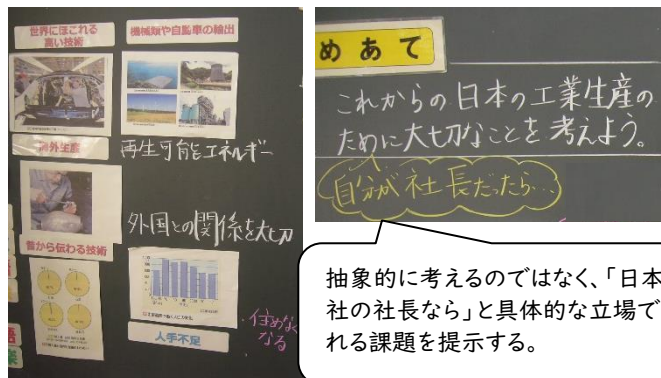 世界にほこれる
高い技術
機械類や自動車の輸出
海外生産
再生可能エネルギー
外国との関係を大切
昔から伝わる技術
人手不足
住めなく
なる
めあて
これからの日本の工業生産の
ために大切なことを考えよう。
自分が社長だったら…
抽象的に考えるのではなく、「日本
社の社長なら」と具体的な立場で
れる課題を提示する。